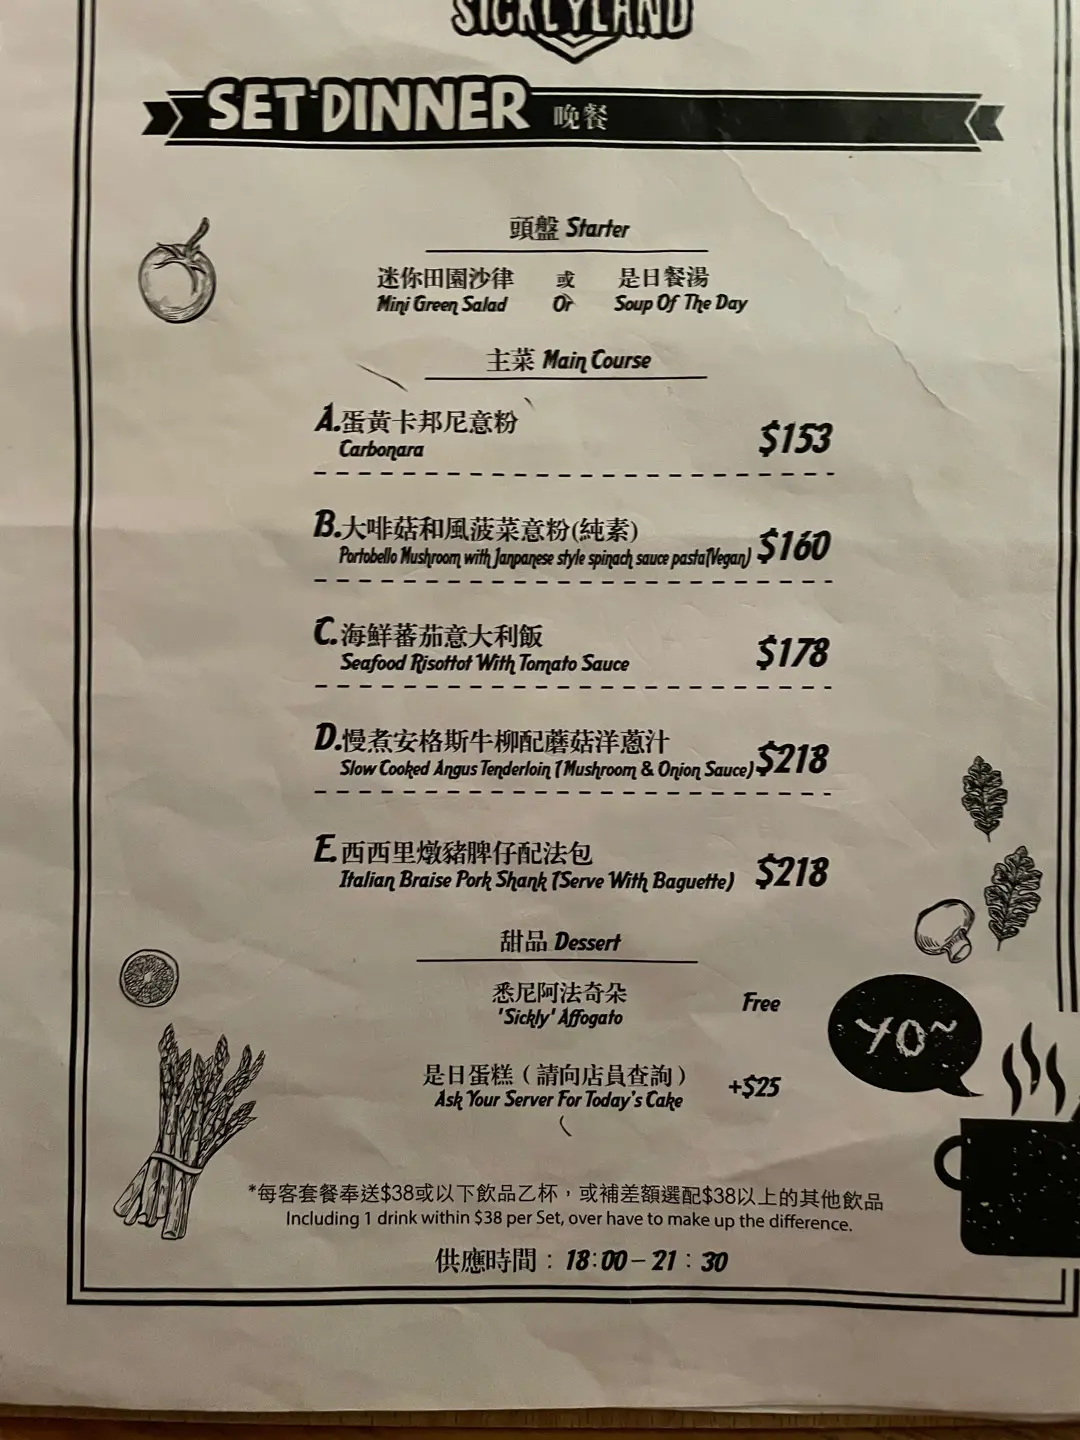 SICKLYLAND
SET DINNER 晚餐
頭盤 Starter
迷你田園沙律 或 是日餐湯
Mini Green Salad Or Soup Of The Day
主菜 Main Course
A.蛋黃卡邦尼意粉
Carbonara $153
B.大啡菇和風菠菜意粉(純素)
Portobello Mushroom with Janpanese style spinach sauce pasta(Vegan) $160
C.海鮮蕃茄意大利飯
Seafood Risottot With Tomato Sauce $178
D.慢煮安格斯牛柳配蘑菇洋蔥汁
Slow Cooked Angus Tenderloin (Mushroom & Onion Sauce) $218
E.西西里燉豬脾仔配法包
Italian Braise Pork Shank (Serve With Baguette) $218
甜品 Dessert
悉尼阿法奇朵
'Sickly' Affogato Free
是日蛋糕（請向店員查詢）
Ask Your Server For Today's Cake +$25
YO~
*每客套餐奉送$38或以下飲品乙杯，或補差額選配$38以上的其他飲品
Including 1 drink within $38 per Set, over have to make up the difference.
供應時間：18:00 – 21：30